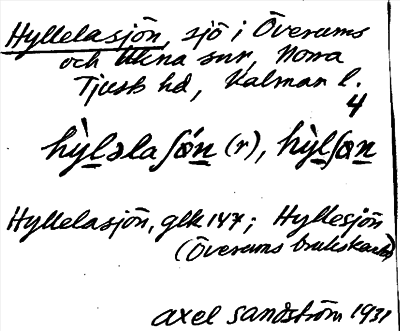 Hyllelasjön, sjö i Överums
och Ukna snr, Norra
Tjusts hd, Kalmar l.
4
hỳl̲əlaʃø̀n̲ (r), hỳl̲ʃøn̲
Hyllelasjön, glk 147; Hyllesjön
(Överums brukskarta)
Axel Sandström 1931